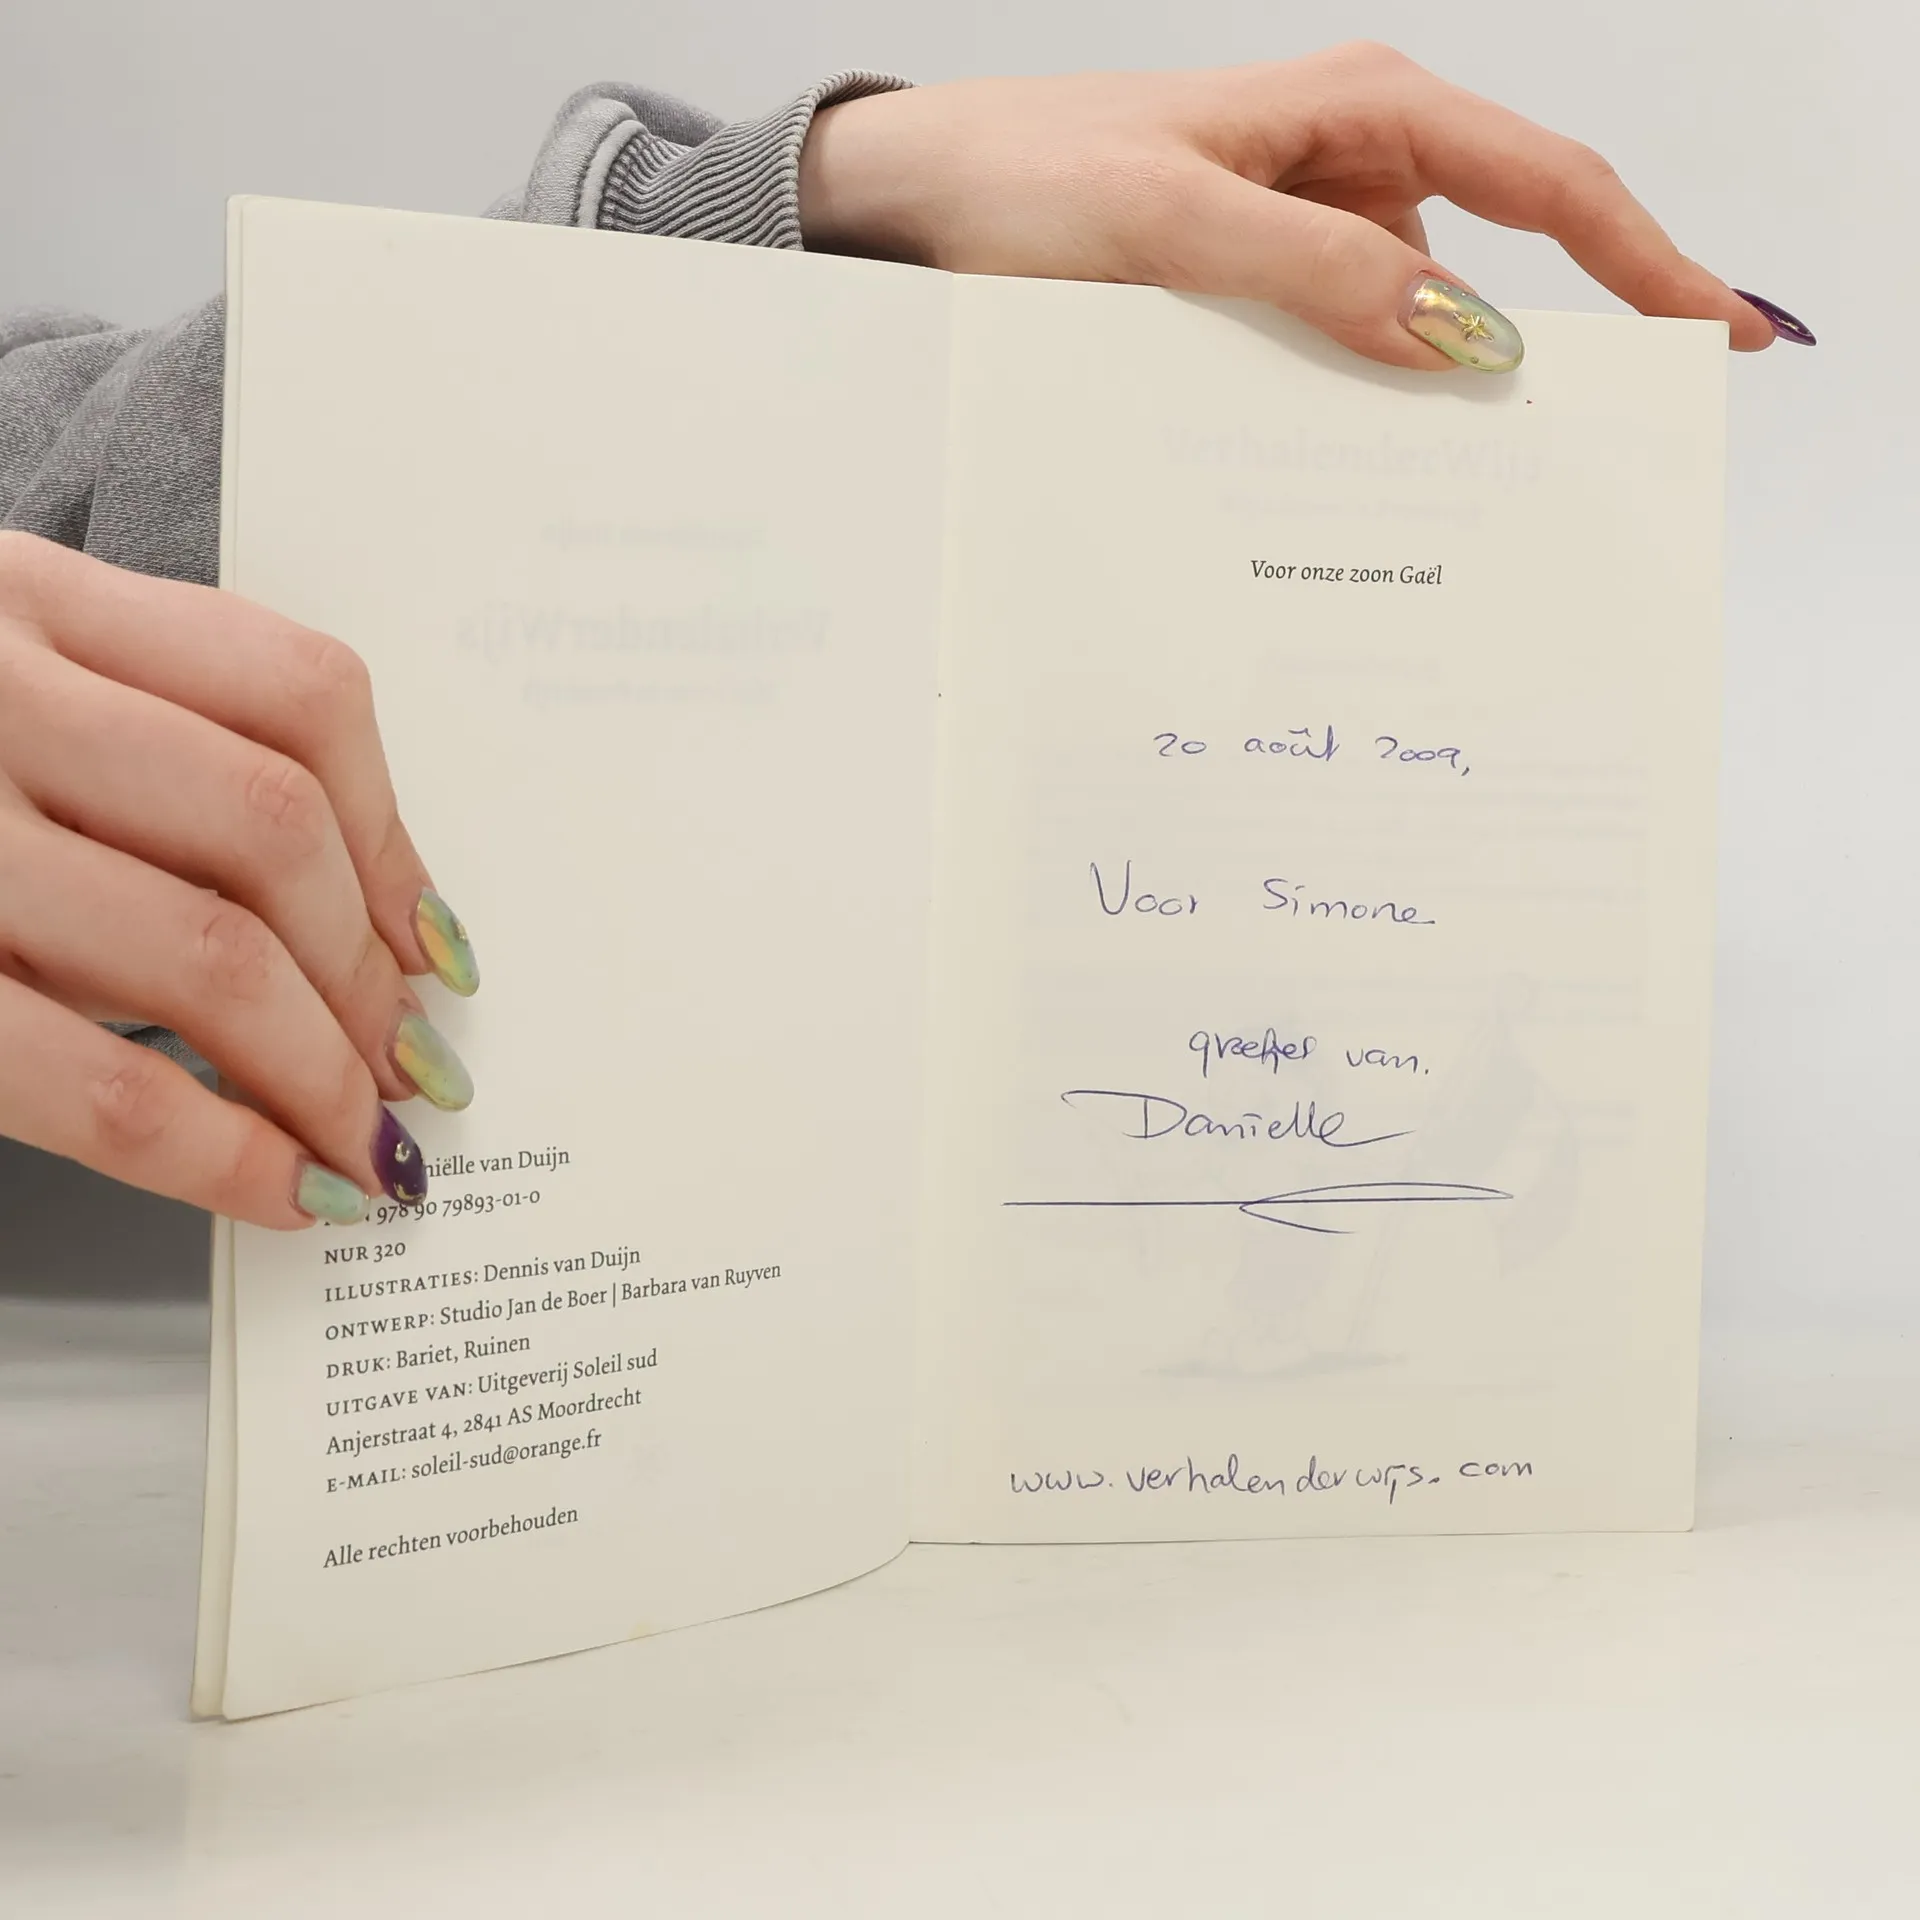 niëlle van Duijn
978 90 79893-01-0
NUR 320
ILLUSTRATIES: Dennis van Duijn
ONTWERP: Studio Jan de Boer | Barbara van Ruyven
DRUK: Bariet, Ruinen
UITGAVE VAN: Uitgeverij Soleil sud
Anjerstraat 4, 2841 AS Moordrecht
E-MAIL: soleil-sud@orange.fr
Alle rechten voorbehouden
VerhalenderWijs
Voor onze zoon Gaël
20 août 2009,
Voor Simone
van.
Danielle
www.verhalenderwijs.com